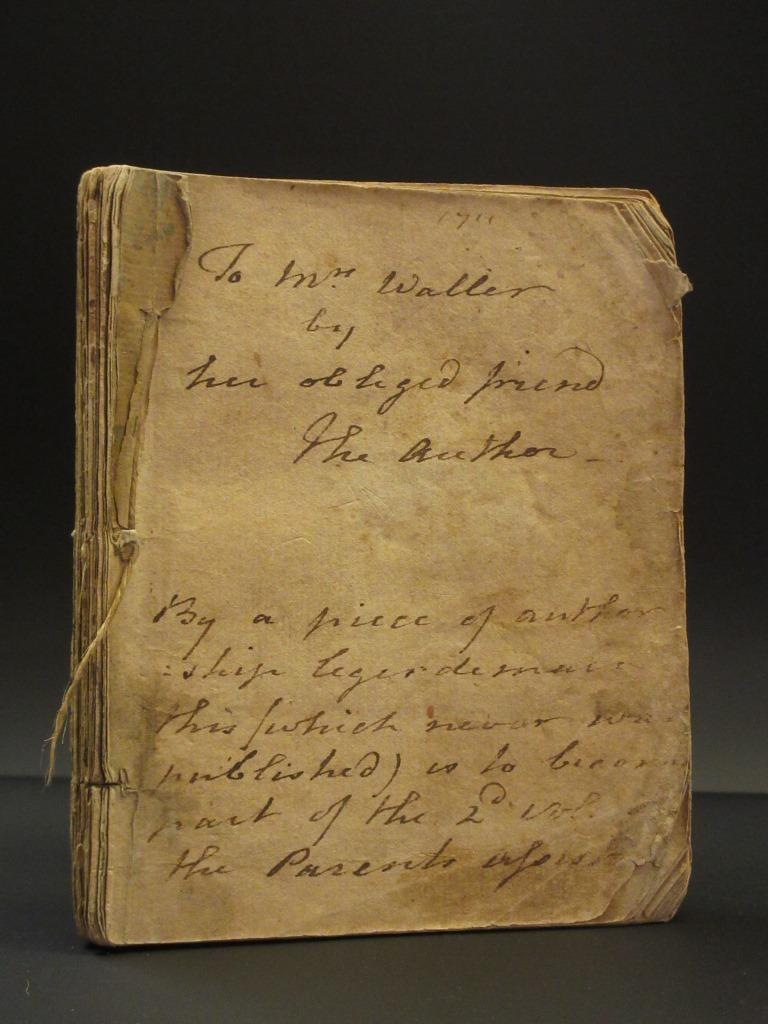 To Mrs Waller
by
her obliged friend
The Author –
By a piece of author
:ship legerdemain
this (which never was
published) is to become
part of the 2d vol. of
the Parents assistant